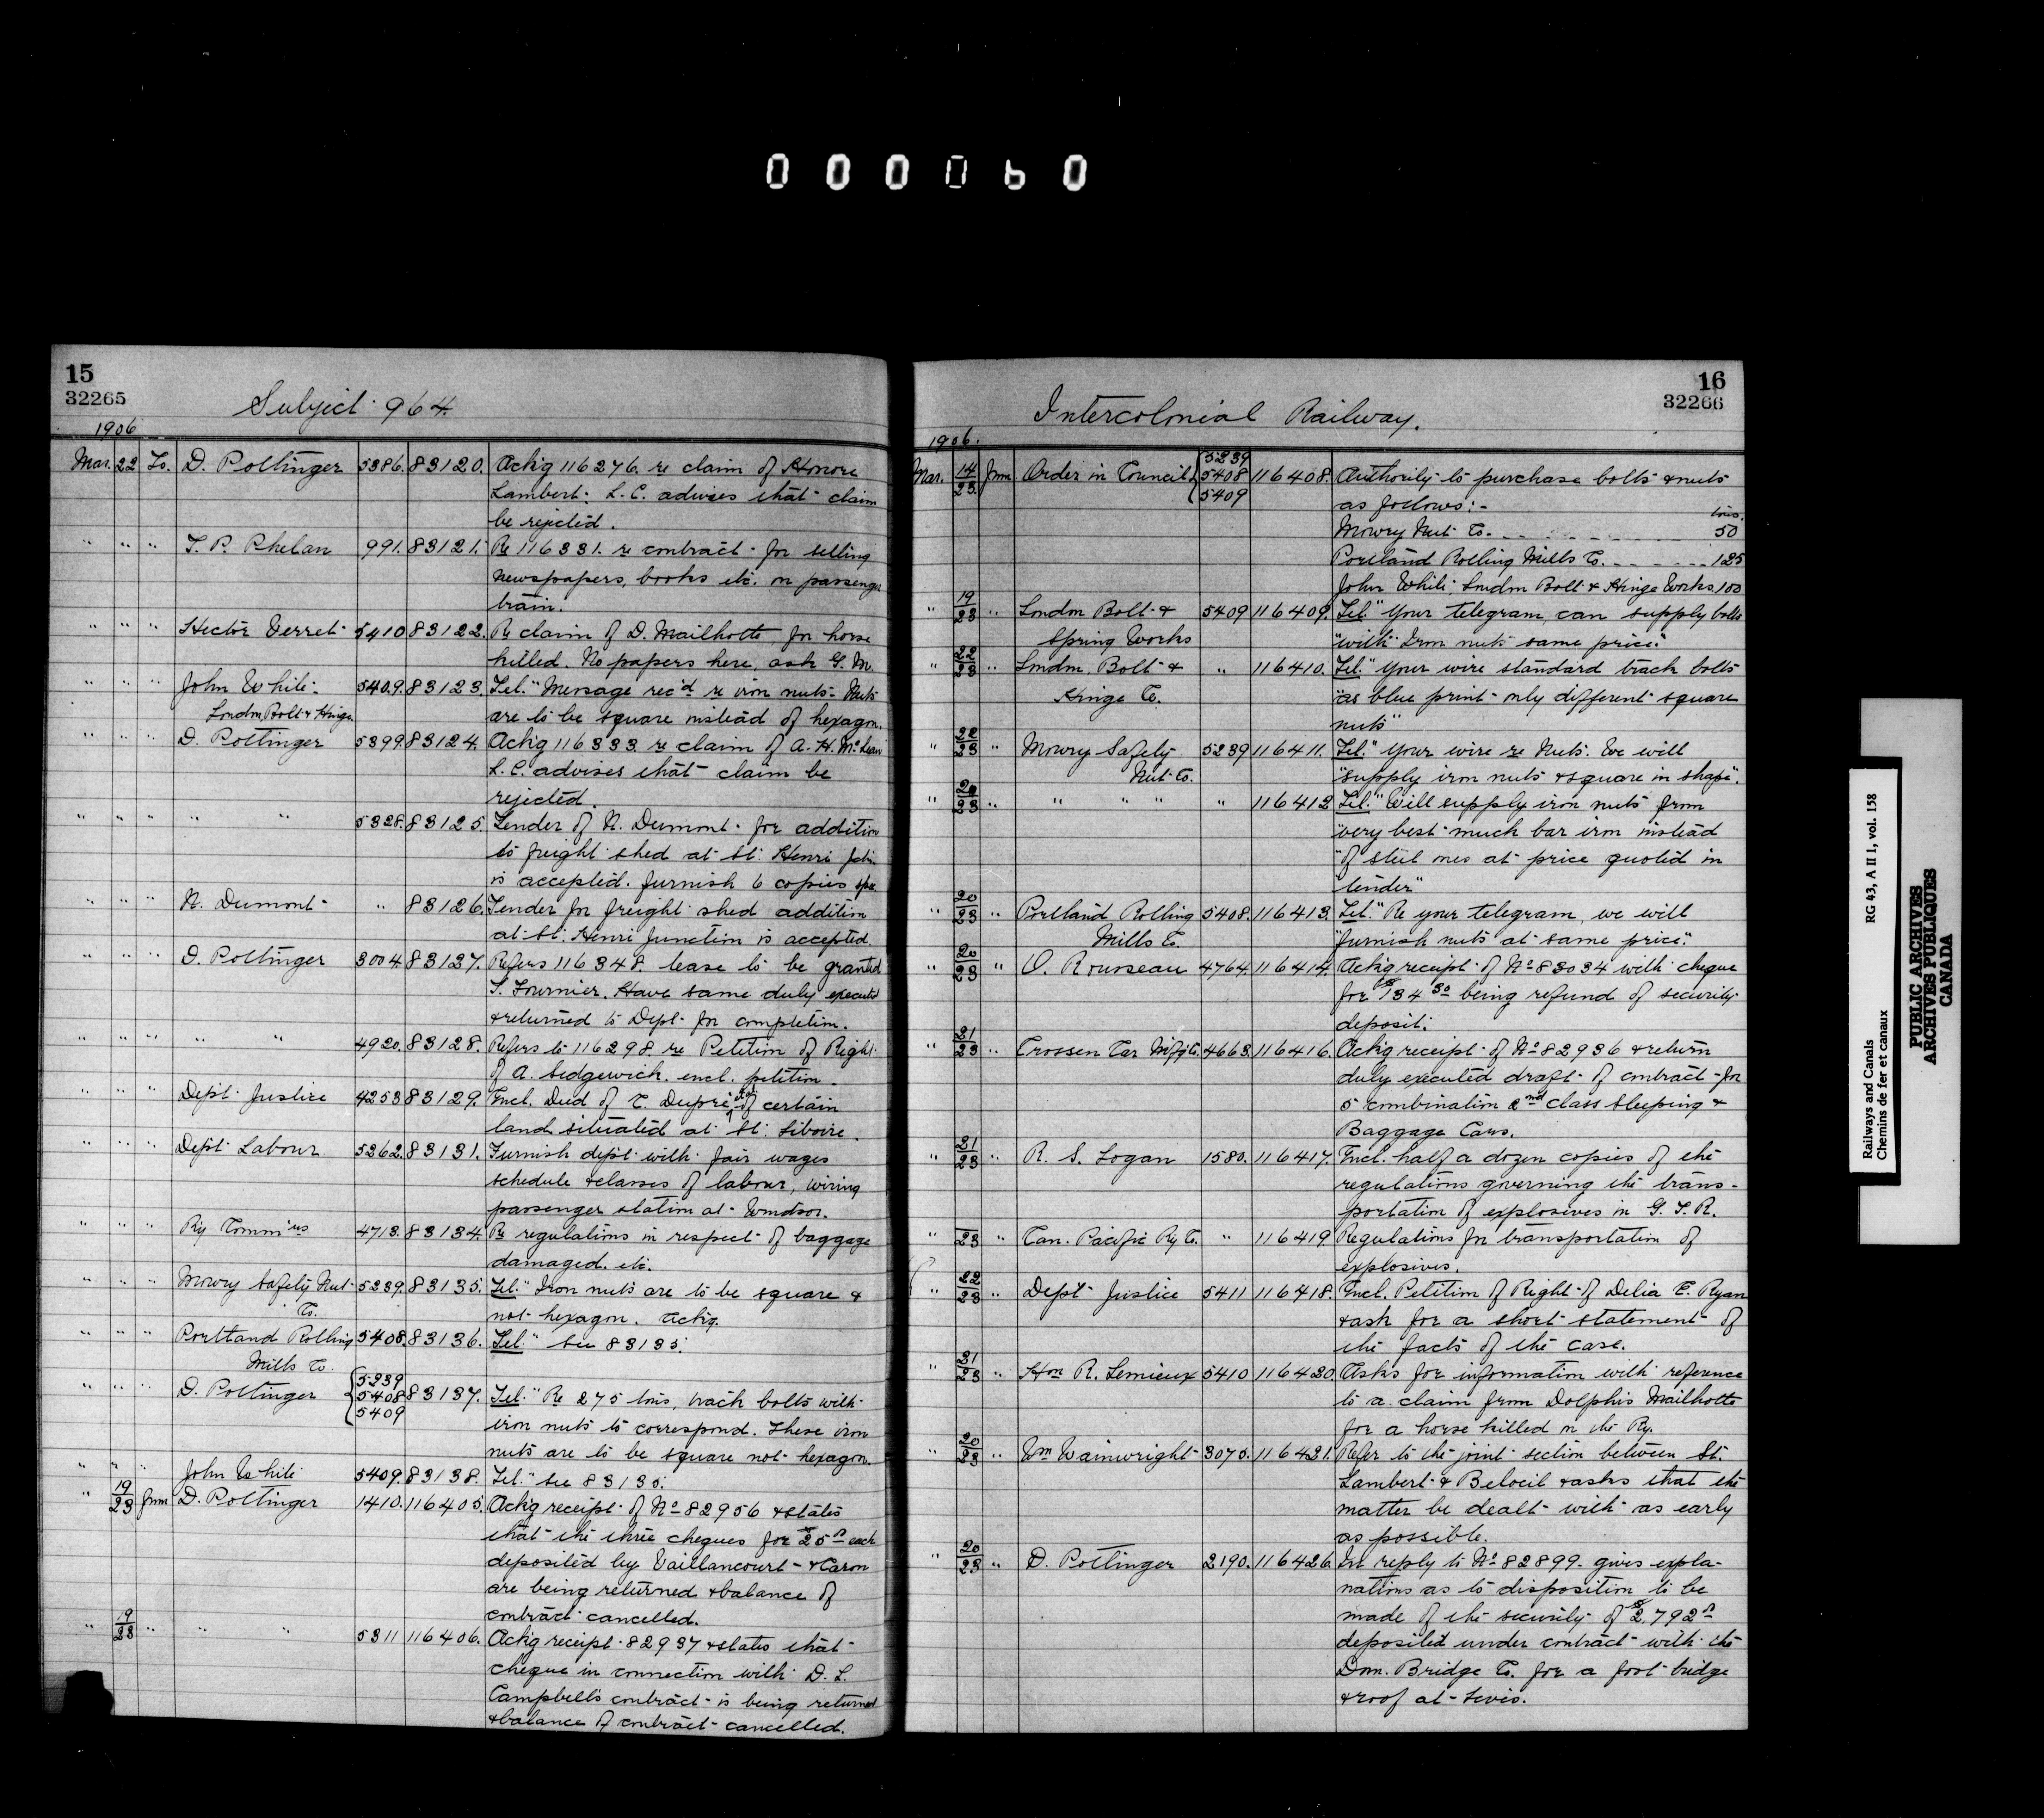 000060
15
32265
Subject 964.
1906
Mar. 22 To. D. Pottinger 5386. 83120. Ack'g 116276. re claim of Honore
Lambert. L.C. advises that claim
be rejected.
" " " T. P. Phelan 991. 83121. Re 116331. re contract for selling
newspapers, books etc. on passenger
train.
" " " Hector Verret 5410 83122. Re claim of D. Mailhotte for horse
killed. No papers here, ask G. M.
" " " John White 5409. 83123. Tel. "Message rec'd re iron nuts. Nuts
London Bolt & Hinge are to be square instead of hexagon.
" " " D. Pottinger 5399. 83124. Ack'g 116333 re claim of A. H. McLean
L.C. advises that claim be
rejected.
" " " " " 5328. 83125. Tender of N. Dumont for addition
to freight shed at St. Henri Jctn
is accepted. Furnish 6 copies spec.
" " " N. Dumont " 83126. Tender for freight shed addition
at St. Henri Junction is accepted.
" " " D. Pottinger 3004. 83127. Refers 116348. lease to be granted
T. Fournier. Have same duly executed
& returned to Dept. for completion.
" " " " " 4920. 83128. Refers to 116298 re Petition of Right
of A. Sedgewick. encl. petition.
" " " Dept. Justice 4253 83129. Encl. Deed of C. Dupré, of certain
land situated at St. Liboire.
" " " Dept Labour 5362. 83131. Furnish dept with fair wages
schedule & classes of labour, wiring
passenger station at Windsor.
" " " Ry Comm'rs 4713. 83134. Re regulations in respect of baggage
damaged. etc.
" " " Mowry Safety Nut 5239. 83135. Tel. "Iron nuts are to be square &
Co. not hexagon. Ack'g.
" " " Portland Rolling 5408. 83136. Tel. " See 83135.
Mills Co.
" " " D. Pottinger { 5239 5408 5409 83137. Tel. "Re 275 tons, track bolts with
iron nuts to correspond. These iron
nuts are to be square not hexagon.
" " " John White 5409. 83138. Tel. " See 83135.
" 19/23 from D. Pottinger 1410. 116405. Ack'g receipt of No 82956 & states
that the three cheques for $25 each
deposited by Vaillancourt & Caron
are being returned & balance of
contract cancelled.
" 19/23 " " " 5311 116406. Ack'g receipt 82937 & states that
cheque in connection with D. L.
Campbell's contract is being returned
& balance of contract cancelled.
16
32266
Intercolonial Railway.
1906.
Mar. 14/23 from Order in Council { 5239 5408 5409 116408. Authority to purchase bolts & nuts
as follows:- tons.
Mowry Nut Co. 50
Portland Rolling Mills Co. 125
John White, London Bolt & Hinge Works 100
" 19/23 " London Bolt & 5409 116409. Tel. "Your telegram, can supply bolts
Spring Works "with Iron nuts same price."
" 22/23 " London Bolt & " 116410. Tel. "Your wire standard track bolts
Hinge Co. "as blue print only different square
nuts"
" 22/23 " Mowry Safety 5239 116411. Tel. "Your wire re Nuts. We will
Nut Co. "supply iron nuts & square in shape".
" 20/23 " " " " " 116412 Tel. "Will supply iron nuts from
"very best much bar iron instead
"of steel ones at price quoted in
tender"
" 20/23 " Portland Rolling 5408. 116413. Tel. "Re your telegram, we will
Mills Co. "furnish nuts at same price".
" 20/23 " O. Rousseau 4764. 116414. Ack'g receipt of No 83034 with cheque
for $134 30 being refund of security
deposit.
" 21/23 " Crossen Car M'f'g Co. 4663. 116416. Ack'g receipt of No 82936 & return
duly executed draft of contract for
5 combination 2nd class Sleeping &
Baggage Cars.
" 21/23 " R. S. Logan 1580. 116417. Encl. half a dozen copies of the
regulations governing the trans-
portation of explosives in G. T. R.
" 23 " Can. Pacific Ry Co. " 116419. Regulations for transportation of
explosives.
" 22/23 " Dept Justice 5411 116418. Encl. Petition of Right of Delia E. Ryan
& ask for a short statement of
the facts of the case.
" 21/23 " Hon R. Lemieux 5410 116420. Asks for information with reference
to a claim from Dolphis Mailhotte
for a horse killed on the Ry.
" 20/23 " Wm Wainwright 3075. 116421. Refer to the joint section between St.
Lambert & Beloeil & asks that the
matter be dealt with as early
as possible.
" 20/23 " D. Pottinger 2190. 116426. In reply to No 82899. gives expla-
nations as to disposition to be
made of the security of $2,792
deposited under contract with the
Dom. Bridge Co. for a foot bridge
& roof at Levis.
Railways and Canals RG 43, A II 1, vol. 158
Chemins de fer et canaux
PUBLIC ARCHIVES
ARCHIVES PUBLIQUES
CANADA